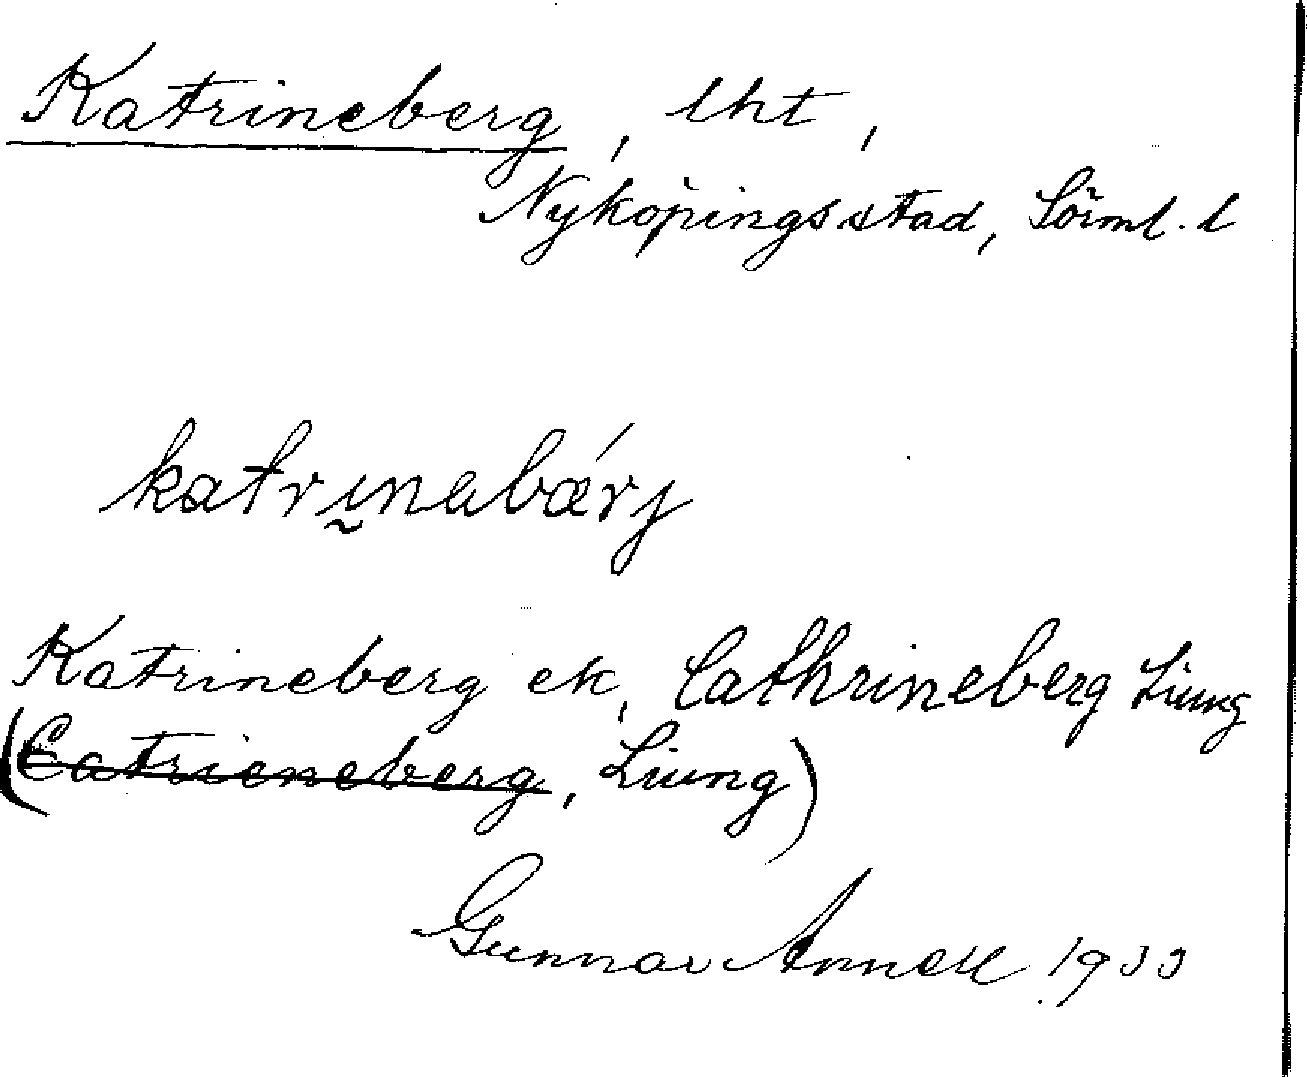 Katrineberg, lht,
Nyköpings stad, Sörml. l
katrinabärj
Katrineberg ek, Cathrineberg Liung
(Catrieneberg, Liung)
Gunnar Annell 1933